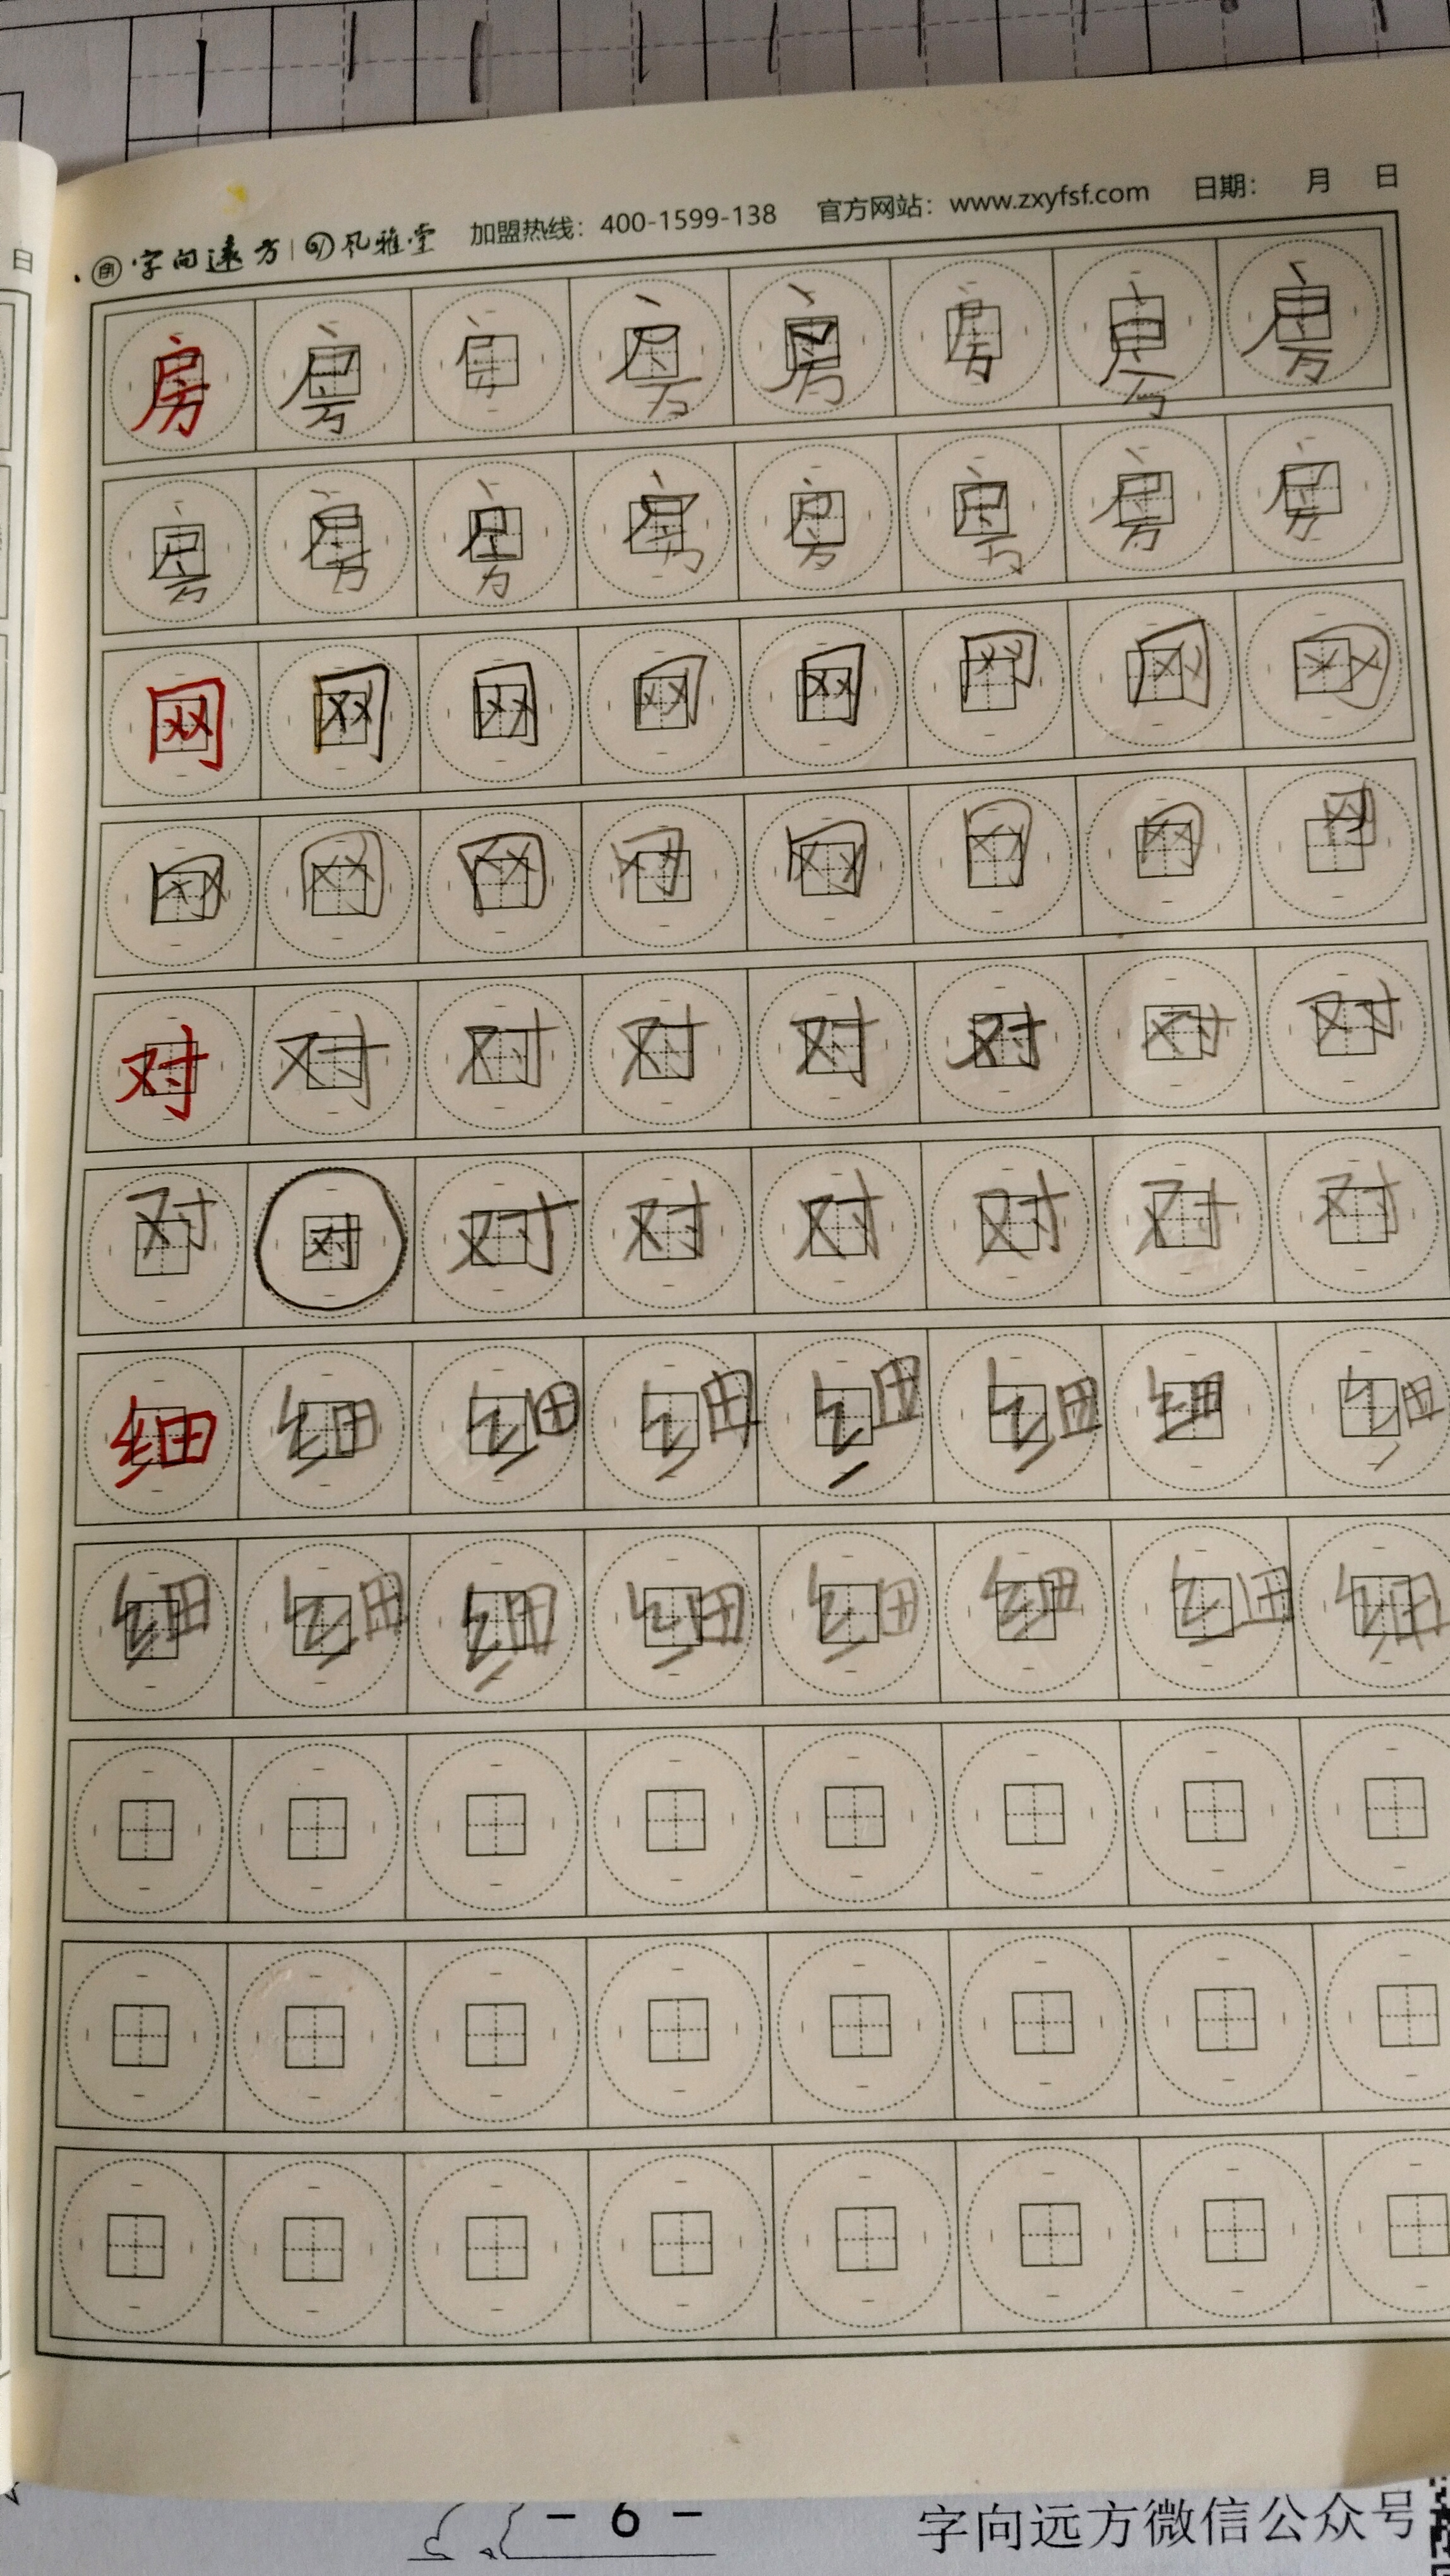 日
字向远方 | 风雅堂 加盟热线：400-1599-138 官方网站：www.zxyfsf.com 日期： 月 日
房 房 房 房 房 房 房 房
房 房 房 房 房 房 房 房
网 网 网 网 网 网 网 网
网 网 网 网 网 网 网 网
对 对 对 对 对 对 对 对
对 对 对 对 对 对 对 对
细 细 细 细 细 细 细 细
细 细 细 细 细 细 细 细
- 6 -
字向远方微信公众号